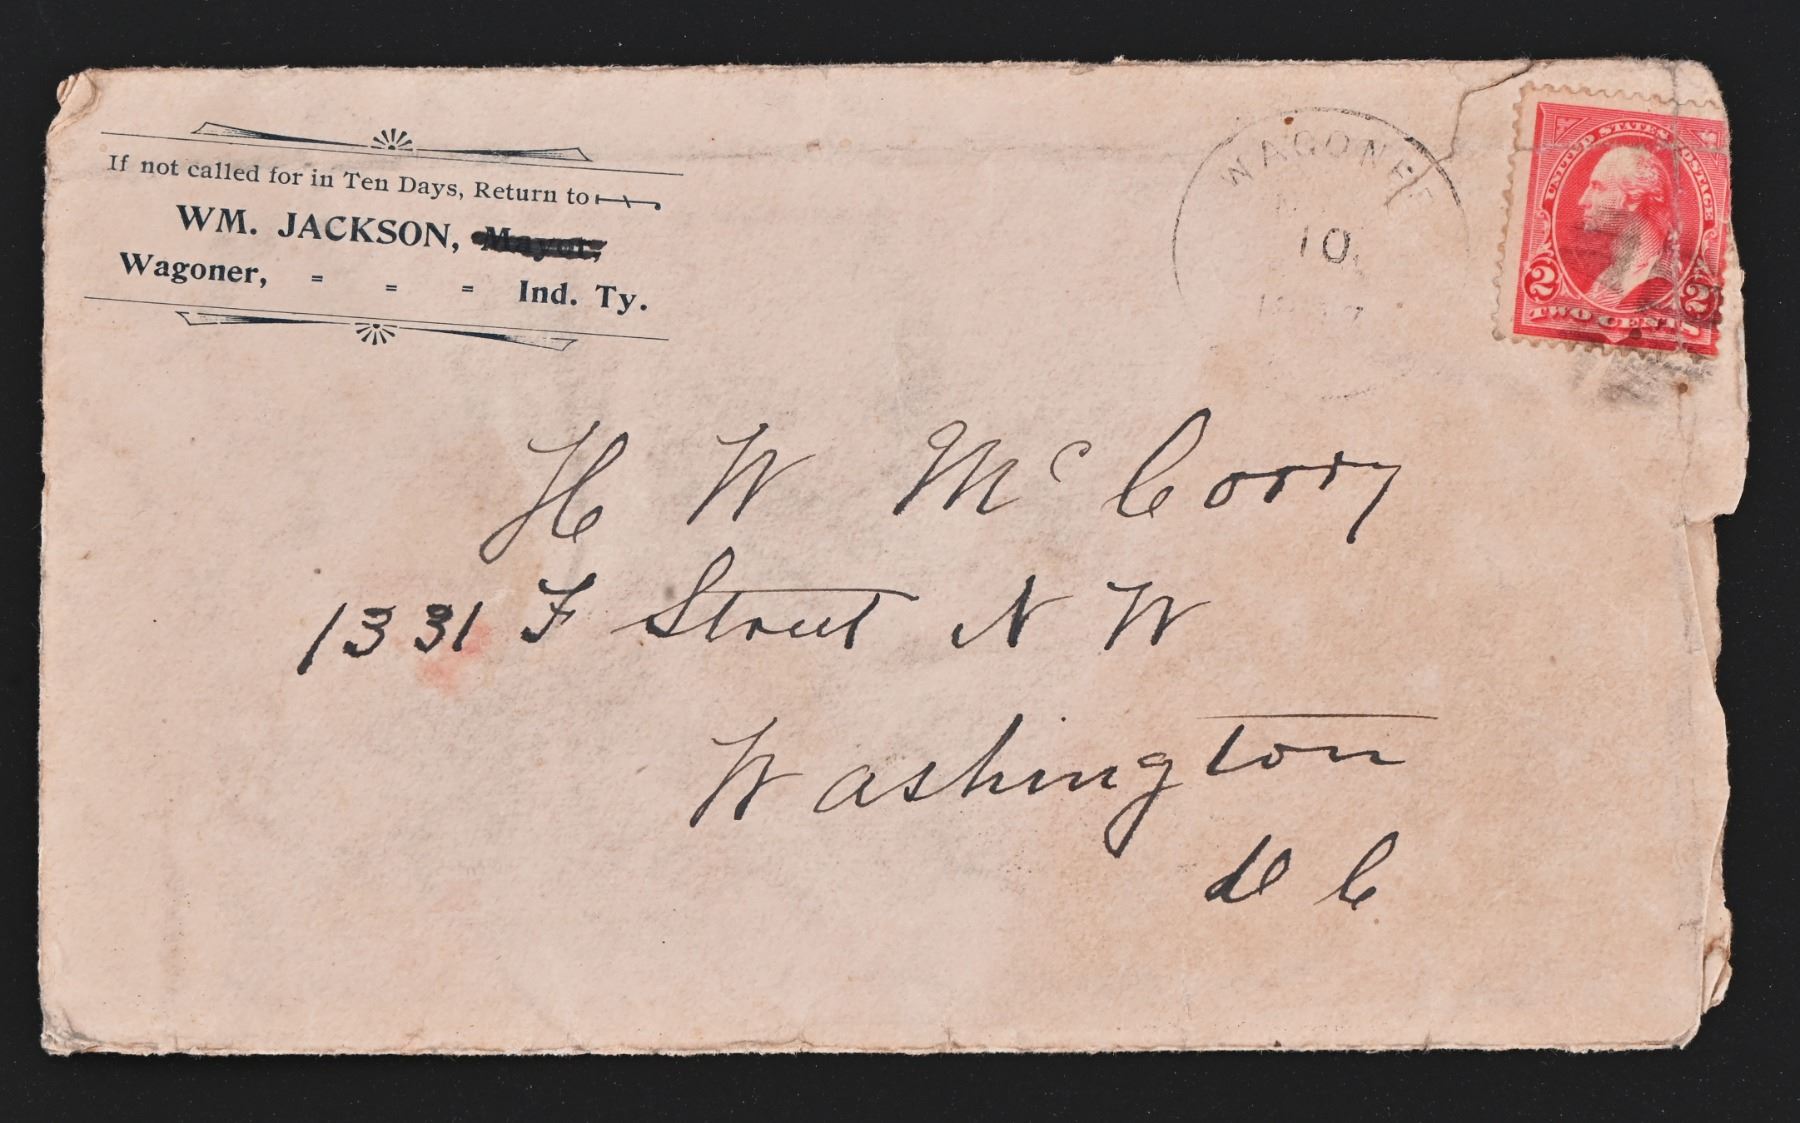 If not called for in Ten Days, Return to
WM. JACKSON, Mayor,
Wagoner, = = = Ind. Ty.
WAGONER
10
UNITED STATES POSTAGE
2 2
TWO CENTS
H W McCorry
1331 F Street N W
Washington
D C